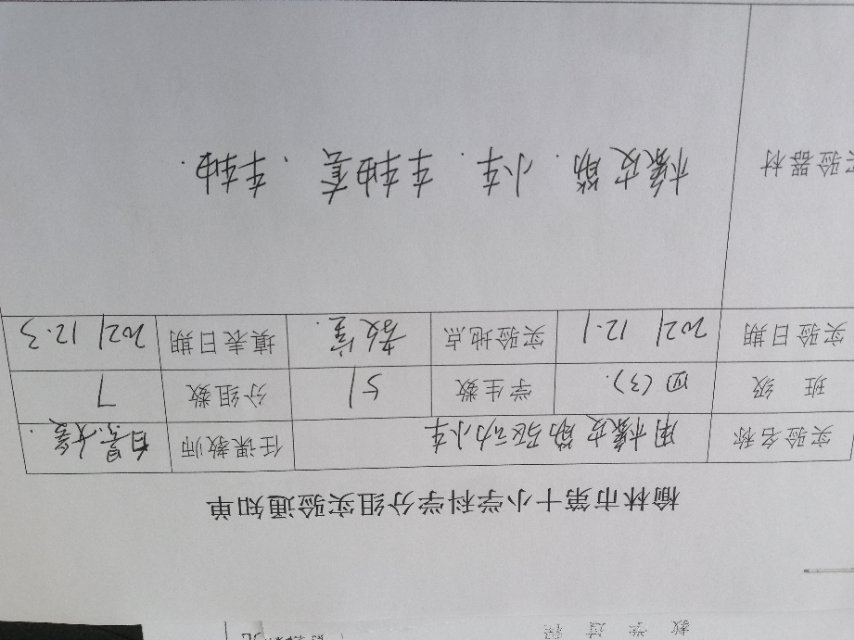 教 学 过 程
榆林市第十小学科学分组实验通知单
实验名称 用橡皮筋驱动小车 任课教师
班 级 四(3). 学生数 51 分组数 7
实验日期 2021 12.1 实验地点 教室. 填表日期 2021 12.3
实验器材 橡皮筋. 小车. 车轴套、车轴.